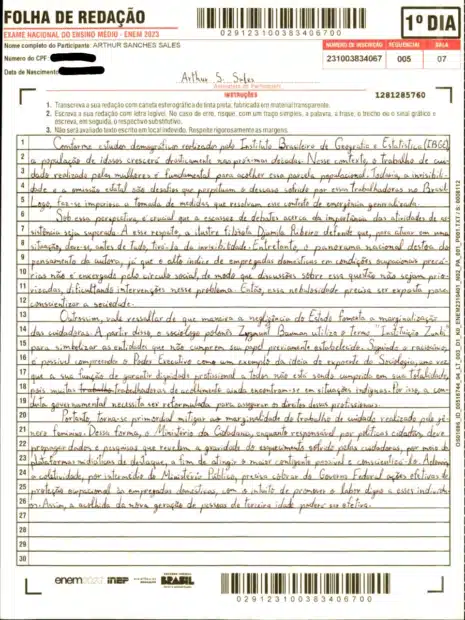 FOLHA DE REDAÇÃO
EXAME NACIONAL DO ENSINO MÉDIO - ENEM 2023
029123100383406700
1º DIA
Nome completo do Participante: ARTHUR SANCHES SALES
Número do CPF:
Data de Nascimento:
NÚMERO DE INSCRIÇÃO SEQUENCIAL SALA
231003834067 005 07
Arthur S. Sales
Assinatura do Participante
INSTRUÇÕES
1281285760
1. Transcreva a sua redação com caneta esferográfica de tinta preta, fabricada em material transparente.
2. Escreva a sua redação com letra legível. No caso de erro, risque, com um traço simples, a palavra, a frase, o trecho ou o sinal gráfico e
escreva, em seguida, o respectivo substitutivo.
3. Não será avaliado texto escrito em local indevido. Respeite rigorosamente as margens.
1 Conforme estudos demográficos realizado pelo Instituto Brasileiro de Geografia e Estatística (IBGE),
2 a população de idosos crescerá drasticamente nas próximas décadas. Nesse contexto, o trabalho de cui-
3 dado realizado pelas mulheres é fundamental para acolher essa parcela populacional. Todavia, a invisibili-
4 dade e a omissão estatal são desafios que perpetuam o descaso sofrido por essas trabalhadoras no Brasil.
5 Logo, faz-se imperiosa a tomada de medidas que resolvam esse contexto de emergência generalizada.
6 Sob essa perspectiva, é crucial que a escassez de debates acerca da importância das atividades de as-
7 sistência seja superada. A esse respeito, a ilustre filósofa Djamila Ribeiro defende que, para atuar em uma
8 situação, deve-se, antes de tudo, tirá-la da invisibilidade. Entretanto, o panorama nacional destoa do
9 pensamento da autora, já que o alto índice de empregadas domésticas em condições ocupacionais precá-
10 rias não é enxergado pelo círculo social, de modo que discussões sobre essa questão não sejam prio-
11 rizadas, dificultando intervenções nesse problema. Então, essa nebulosidade precisa ser exposta para
12 conscientizar a sociedade.
13 Outrossim, vale ressaltar de que maneira a negligência do Estado fomenta a marginalização
14 das cuidadoras. A partir disso, o sociólogo polonês Zygmunt Bauman utiliza o termo "Instituição Zumbi"
15 para simbolizar as entidades que não cumprem seu papel previamente estabelecido. Seguindo o raciocínio,
16 é possível compreender o Poder Executivo como um exemplo da ideia do expoente da Sociologia, uma vez
17 que a sua função de garantir dignidade profissional a todos não está sendo cumprida em sua totalidade,
18 pois muitas trabalhadoras de acolhimento ainda encontram-se em situações indignas. Por isso, a con-
19 duta governamental necessita ser reformulada para assegurar os direitos desses profissionais.
20 Portanto, torna-se primordial mitigar a marginalidade do trabalho de cuidado realizado pelo gê-
21 nero feminino. Dessa forma, o Ministério da Cidadania, enquanto responsável por políticas cidadãs, deve
22 propagar dados e pesquisas que revelam a gravidade do esquecimento sofrido pelas cuidadoras, por meio de
23 plataformas midiáticas de destaque, a fim de atingir o maior contingente possível e conscientizá-lo. Ademais,
24 a coletividade, por intermédio do Ministério Público, precisa cobrar do Governo Federal ações efetivas de
25 proteção ocupacional às empregadas domésticas, com o intuito de promover o labor digno a esses indivídu-
26 os. Assim, a acolhida da nova geração de pessoas da terceira idade poderá ser efetiva.
27
28
29
30
enem2023 inep
MINISTÉRIO DA EDUCAÇÃO
GOVERNO FEDERAL BRASIL
029123100383406700